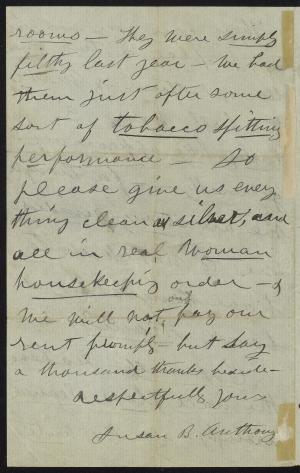 rooms — They were simply
filthy last year — we had
them just after some
sort of tobacco spitting
performance — So
please give us every
thing clean as silver, and
all in real woman
housekeeping order — &
we will not only pay our
rent promptly — but say
a thousand thanks beside —
respectfully yours
Susan B. Anthony